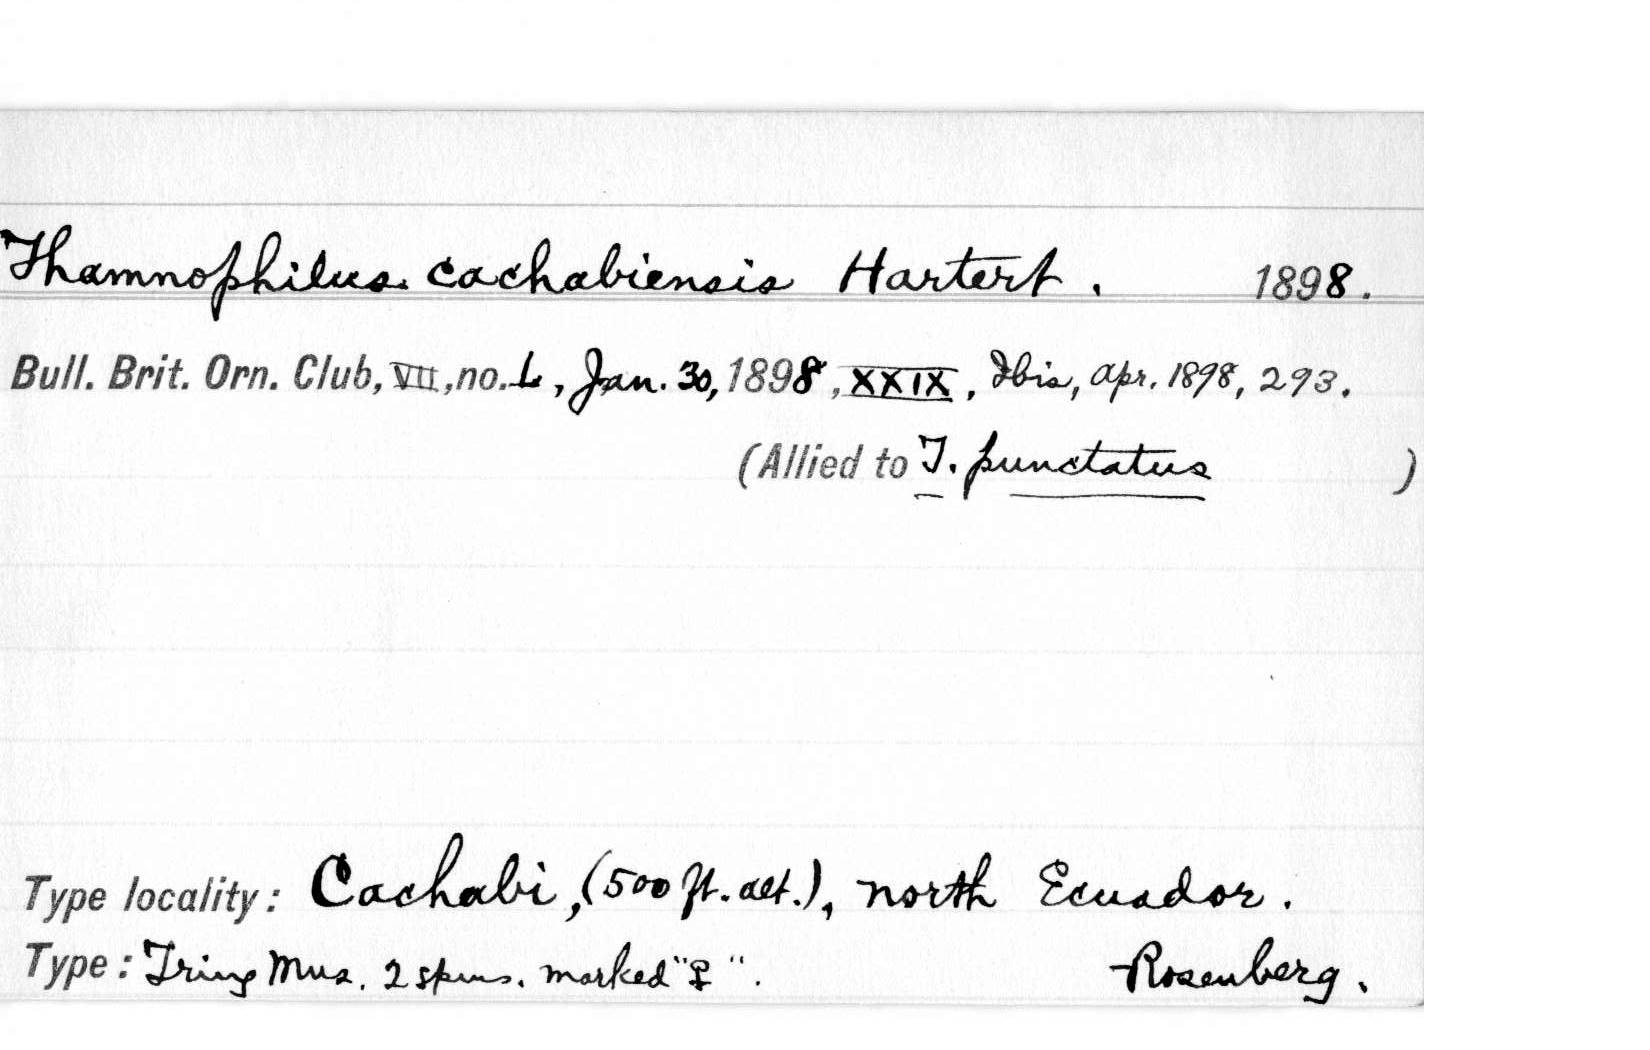 Thamnophilus cachabiensis Hartert. 1898.
Bull. Brit. Orn. Club, VII, no. L, Jan. 30, 1898, XXIX, Ibis, Apr. 1898, 293.
(Allied to T. punctatus )
Type locality: Cachabi, (500 ft. alt.), north Ecuador.
Type: Tring Mus. 2 spms. marked "♀". Rosenberg.